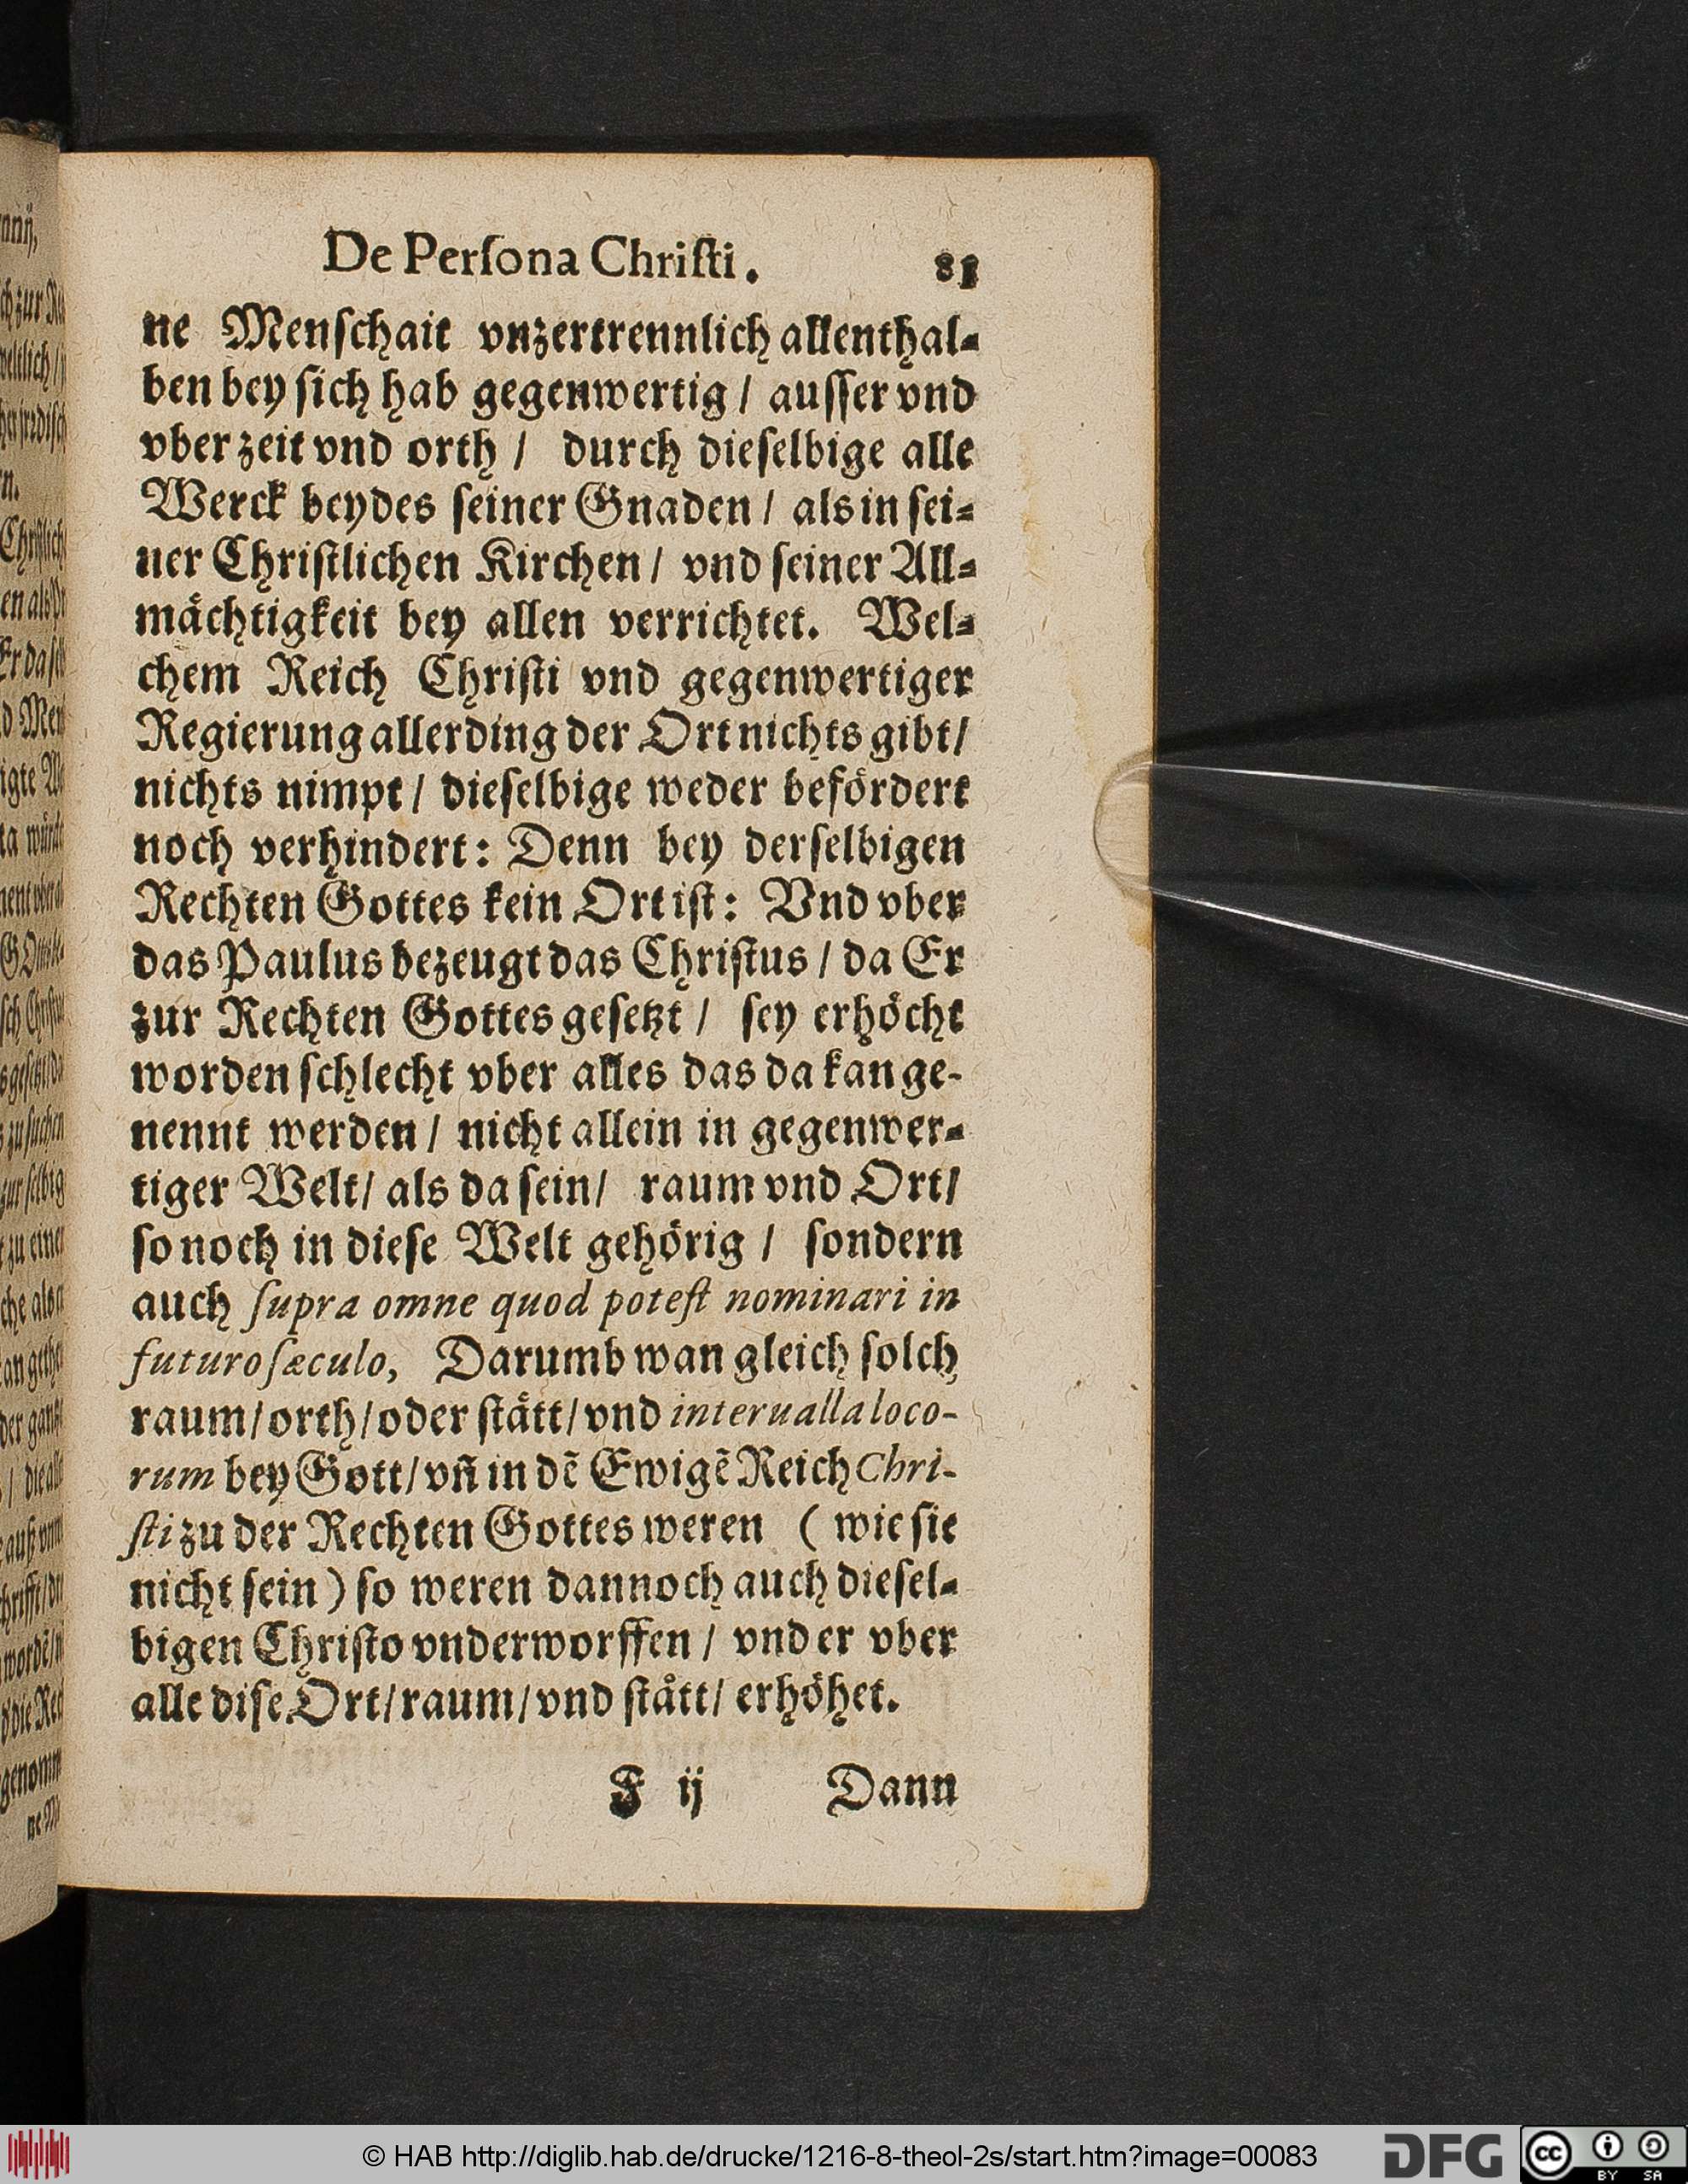 De Perſona Chriſti. 81
ne Menſchait vnzertrennlich allenthal⸗
ben bey ſich hab gegenwertig / auſſer vnd
vber zeit vnd orth / durch dieſelbige alle
Werck beydes ſeiner Gnaden / als in ſei⸗
ner Chriſtlichen Kirchen / vnd ſeiner All⸗
mächtigkeit bey allen verrichtet. Wel⸗
chem Reich Chriſti vnd gegenwertiger
Regierung allerding der Ort nichts gibt /
nichts nimpt / dieſelbige weder befördert
noch verhindert: Denn bey derſelbigen
Rechten Gottes kein Ort iſt: Vnd vber
das Paulus bezeugt das Chriſtus / da Er
zur Rechten Gottes geſetzt / ſey erhöcht
worden ſchlecht vber alles das da kan ge-
nennt werden / nicht allein in gegenwer⸗
tiger Welt / als da ſein / raum vnd Ort /
ſo noch in dieſe Welt gehörig / ſondern
auch ſupra omne quod poteſt nominari in
futuro ſæculo, Darumb wan gleich ſolch
raum / orth / oder ſtätt / vnd interualla loco-
rum bey Gott / vñ in dẽ Ewigẽ Reich Chri-
ſti zu der Rechten Gottes weren ( wie ſie
nicht ſein ) ſo weren dannoch auch dieſel⸗
bigen Chriſto vnderworffen / vnd er vber
alle diſe Ort / raum / vnd ſtätt / erhöhet.
F ij Dann
© HAB http://diglib.hab.de/drucke/1216-8-theol-2s/start.htm?image=00083
DFG
cc BY SA